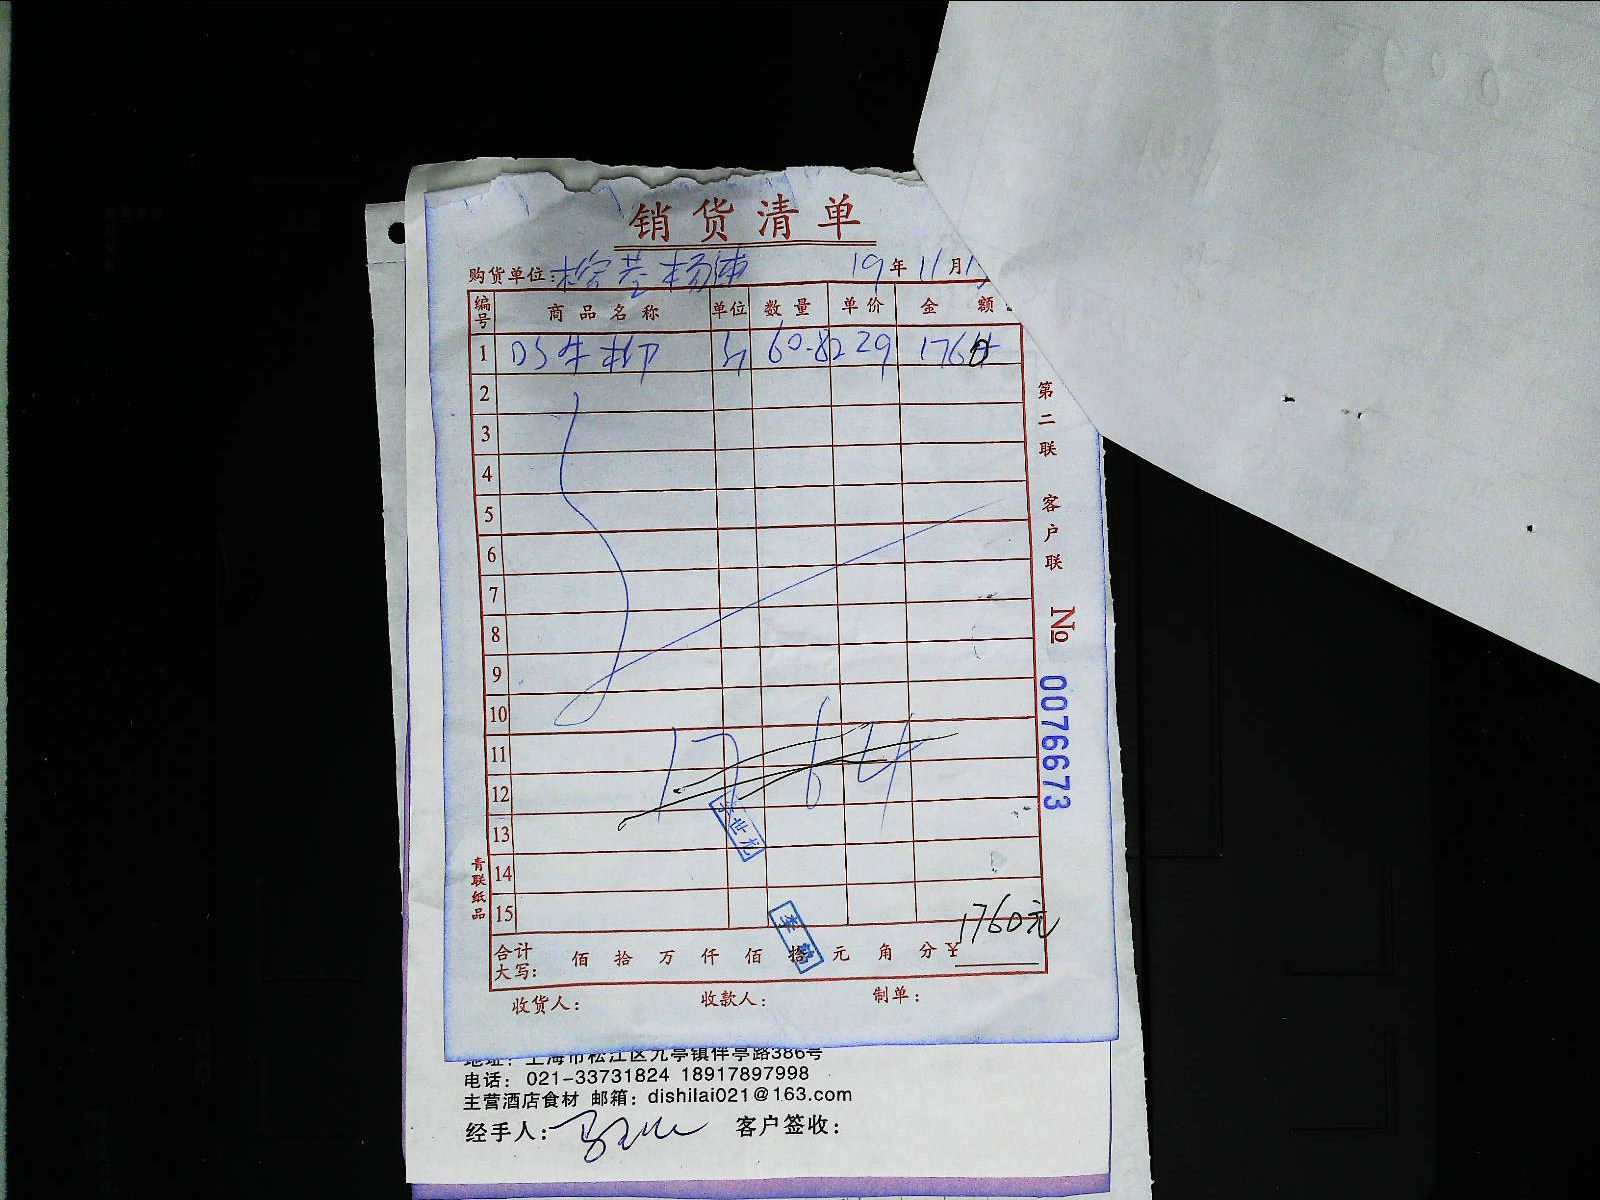 销货清单
购货单位: 19年11月1
编号 商品名称 单位 数量 单价 金额
1 DS牛柳 斤 60.82 29 1760
2
3
4
5
6
7
8
9
10
11
12
13
14
15
1764
李世龙
李
1760元
合计大写: 佰 拾 万 仟 佰 拾 元 角 分 ¥
收货人: 收款人: 制单:
第二联 客户联
No 0076673
青联纸品
地址: 上海市松江区九亭镇伴亭路386号
电话: 021-33731824 18917897998
主营酒店食材 邮箱: dishilai021@163.com
经手人: 客户签收: